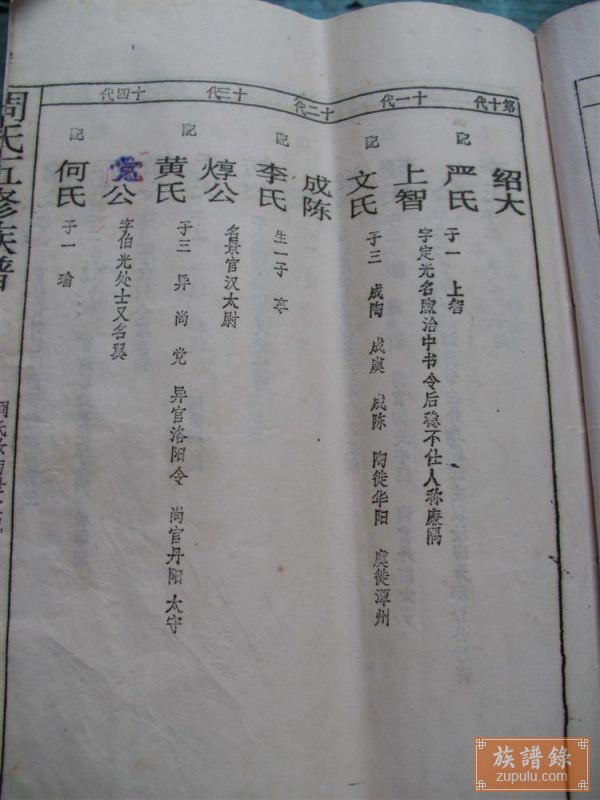 第十代
十一代
十二代
十三代
十四代
绍大
配 严氏 子一 上智
上智 字定光名 治中书令后稳不仕人称廉隅
配 文氏 子三 成陶 成虞 成陈 陶徙华阳 虞徙潭州
成陈
配 李氏 生一子 享
焞公 名 官汉太尉
配 黄氏 子三 异 尚 党 异官洛阳令 尚官丹阳太守
党公 字伯光处士又名翼
配 何氏 子一 瑜
周氏五修族谱
族譜錄
zupulu.com